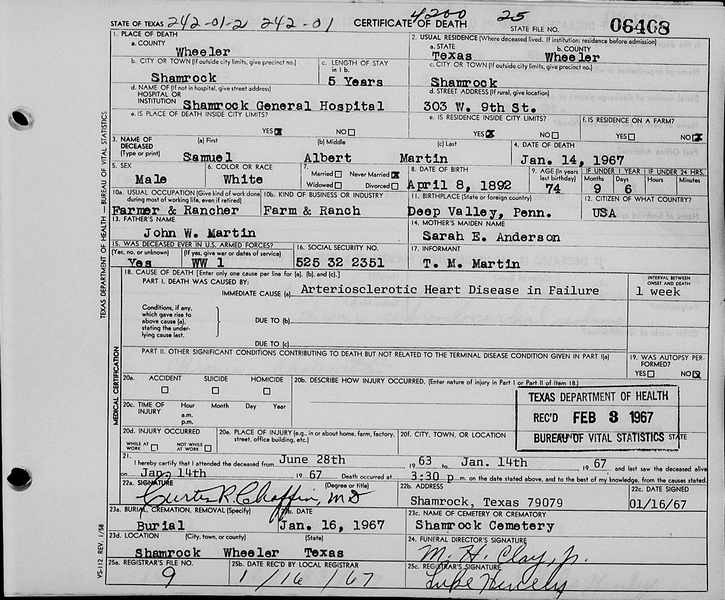 4200 25
STATE OF TEXAS 242-01-2 242-01 CERTIFICATE OF DEATH STATE FILE NO. 06408
1. PLACE OF DEATH 2. USUAL RESIDENCE (Where deceased lived. If institution: residence before admission)
a. COUNTY Wheeler a. STATE Texas b. COUNTY Wheeler
b. CITY OR TOWN (If outside city limits, give precinct no.) Shamrock c. LENGTH OF STAY in 1 b. 5 Years c. CITY OR TOWN (If outside city limits, give precinct no.) Shamrock
d. NAME OF (If not in hospital, give street address) HOSPITAL OR INSTITUTION Shamrock General Hospital d. STREET ADDRESS (If rural, give location) 303 W. 9th St.
e. IS PLACE OF DEATH INSIDE CITY LIMITS? YES NO e. IS RESIDENCE INSIDE CITY LIMITS? YES NO f. IS RESIDENCE ON A FARM? YES NO
3. NAME OF DECEASED (Type or print) (a) First Samuel (b) Middle Albert (c) Last Martin 4. DATE OF DEATH Jan. 14, 1967
5. SEX Male 6. COLOR OR RACE White 7. Married Never Married Widowed Divorced 8. DATE OF BIRTH April 8, 1892 9. AGE (In years last birthday) 74 IF UNDER 1 YEAR Months 9 Days 6 IF UNDER 24 HRS. Hours Minutes
10a. USUAL OCCUPATION (Give kind of work done during most of working life, even if retired) Farmer & Rancher 10b. KIND OF BUSINESS OR INDUSTRY Farm & Ranch 11. BIRTHPLACE (State or foreign country) Deep Valley, Penn. 12. CITIZEN OF WHAT COUNTRY? USA
13. FATHER'S NAME John W. Martin 14. MOTHER'S MAIDEN NAME Sarah E. Anderson
15. WAS DECEASED EVER IN U.S. ARMED FORCES? (Yes, no, or unknown) Yes (If yes, give war or dates of service) WW 1 16. SOCIAL SECURITY NO. 525 32 2351 17. INFORMANT T. M. Martin
18. CAUSE OF DEATH [Enter only one cause per line for (a), (b), and (c).] INTERVAL BETWEEN ONSET AND DEATH
PART I. DEATH WAS CAUSED BY:
IMMEDIATE CAUSE (a) Arteriosclerotic Heart Disease in Failure 1 week
Conditions, if any, which gave rise to above cause (a), stating the underlying cause last. DUE TO (b)
DUE TO (c)
PART II. OTHER SIGNIFICANT CONDITIONS CONTRIBUTING TO DEATH BUT NOT RELATED TO THE TERMINAL DISEASE CONDITION GIVEN IN PART I(a) 19. WAS AUTOPSY PERFORMED? YES NO
20a. ACCIDENT SUICIDE HOMICIDE 20b. DESCRIBE HOW INJURY OCCURRED. (Enter nature of injury in Part I or Part II of item 18.)
20c. TIME OF INJURY Hour Month Day Year a.m. p.m.
TEXAS DEPARTMENT OF HEALTH
REC'D FEB 3 1967
BUREAU OF VITAL STATISTICS
20d. INJURY OCCURRED WHILE AT WORK NOT WHILE AT WORK 20e. PLACE OF INJURY (e.g., in or about home, farm, factory, street, office building, etc.) 20f. CITY, TOWN, OR LOCATION STATE
21. I hereby certify that I attended the deceased from June 28th 1963 to Jan. 14th 1967 and last saw the deceased alive
on Jan. 14th 1967 Death occurred at 3:30 p.m. on the date stated above, and to the best of my knowledge, from the causes stated.
22a. SIGNATURE (Degree or title) Curtis R. Chaffin, MD 22b. ADDRESS Shamrock, Texas 79079 22c. DATE SIGNED 01/16/67
23a. BURIAL, CREMATION, REMOVAL (Specify) Burial 23b. DATE Jan. 16, 1967 23c. NAME OF CEMETERY OR CREMATORY Shamrock Cemetery
23d. LOCATION (City, town, or county) (State) Shamrock Wheeler Texas 24. FUNERAL DIRECTOR'S SIGNATURE M. H. Clay, Jr.
25a. REGISTRAR'S FILE NO. 9 25b. DATE REC'D BY LOCAL REGISTRAR 1/16/67 25c. REGISTRAR'S SIGNATURE
TEXAS DEPARTMENT OF HEALTH — BUREAU OF VITAL STATISTICS
MEDICAL CERTIFICATION
VS-112 REV. 1/58